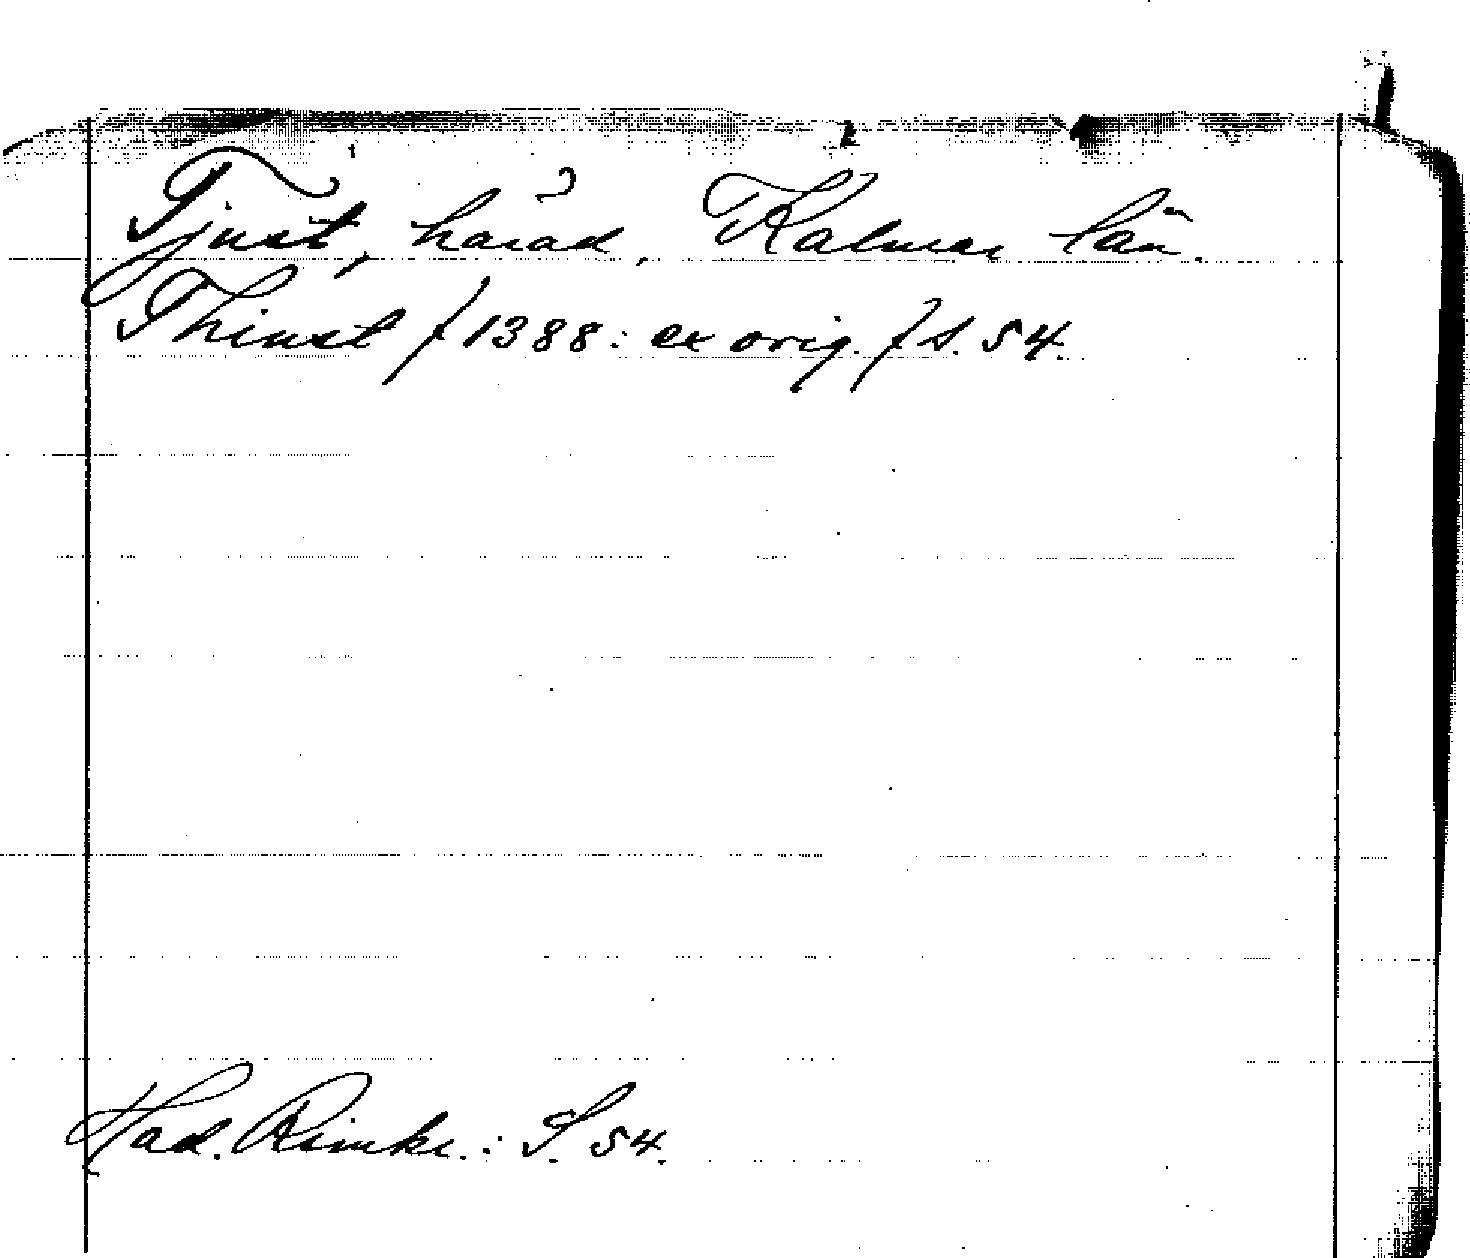 Tjust, härad, Kalmar län.
Thiust / 1388: ex orig. / s. 54.
Had. Rimkr.: S. 54.